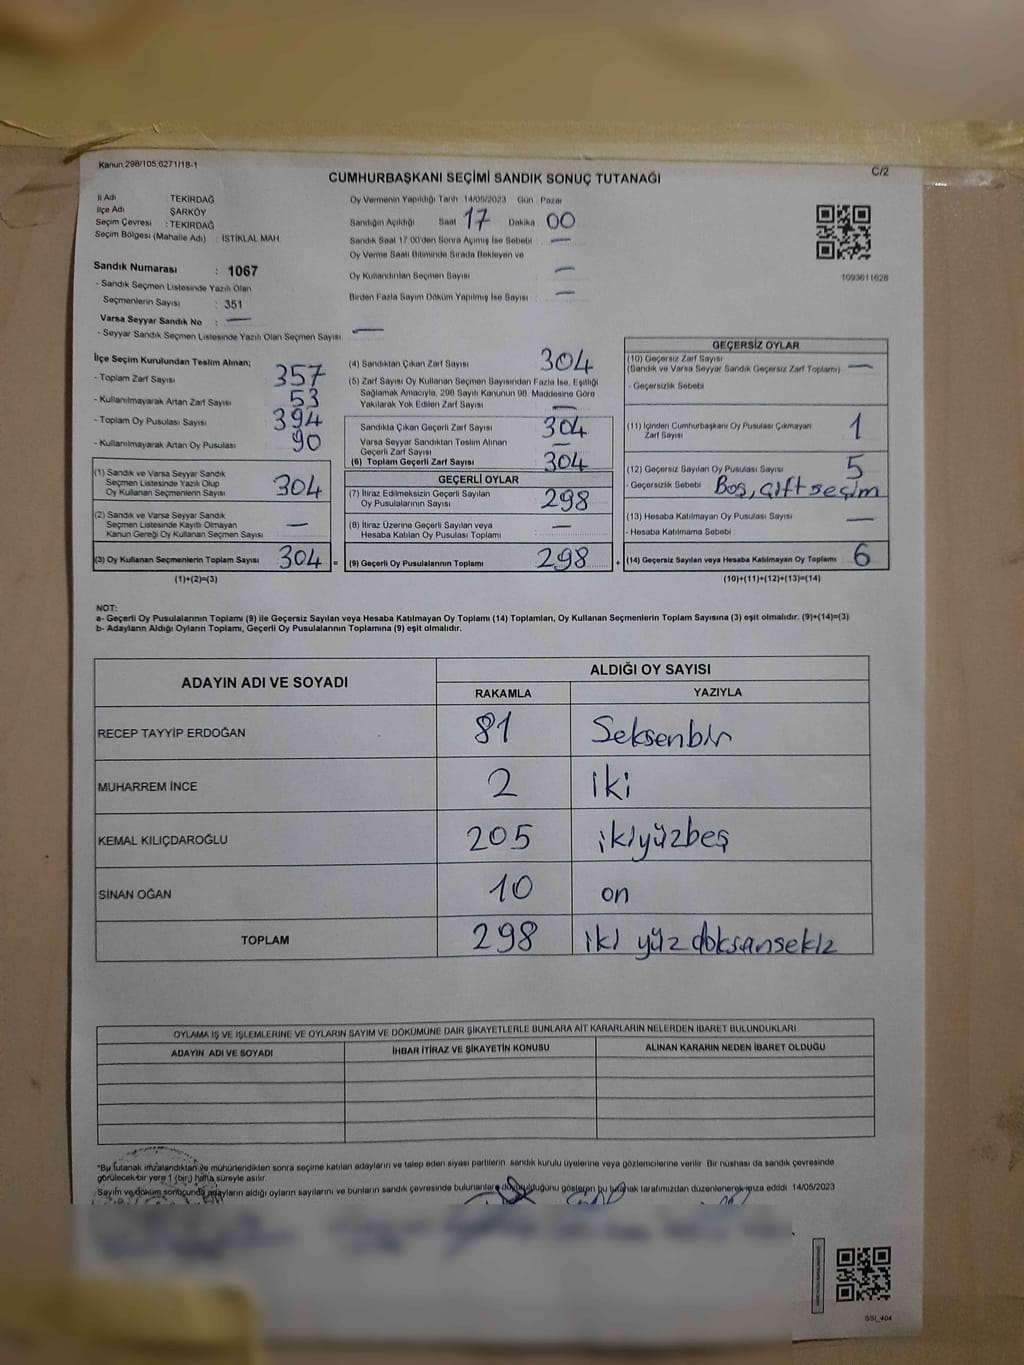 Kanun:298/105,6271/18-1
C/2
CUMHURBAŞKANI SEÇİMİ SANDIK SONUÇ TUTANAĞI
İl Adı TEKİRDAĞ
İlçe Adı ŞARKÖY
Seçim Çevresi : TEKİRDAĞ
Seçim Bölgesi (Mahalle Adı) : İSTİKLAL MAH.
Oy Vermenin Yapıldığı Tarih 14/05/2023 Gün : Pazar
Sandığın Açıldığı Saat 17 Dakika 00
Sandık Saat 17:00'den Sonra Açılmış İse Sebebi : —
Oy Verme Saati Bitiminde Sırada Bekleyen ve
Oy Kullandırılan Seçmen Sayısı : —
Birden Fazla Sayım Döküm Yapılmış İse Sayısı : —
1093611628
Sandık Numarası : 1067
- Sandık Seçmen Listesinde Yazılı Olan
Seçmenlerin Sayısı : 351
Varsa Seyyar Sandık No : —
- Seyyar Sandık Seçmen Listesinde Yazılı Olan Seçmen Sayısı : —
İlçe Seçim Kurulundan Teslim Alınan;
- Toplam Zarf Sayısı 357
- Kullanılmayarak Artan Zarf Sayısı 53
- Toplam Oy Pusulası Sayısı 394
- Kullanılmayarak Artan Oy Pusulası 90
(1) Sandık ve Varsa Seyyar Sandık
Seçmen Listesinde Yazılı Olup
Oy Kullanan Seçmenlerin Sayısı 304
(2) Sandık ve Varsa Seyyar Sandık
Seçmen Listesinde Kayıtlı Olmayan
Kanun Gereği Oy Kullanan Seçmen Sayısı —
(3) Oy Kullanan Seçmenlerin Toplam Sayısı 304 =
(1)+(2)=(3)
(4) Sandıktan Çıkan Zarf Sayısı 304
(5) Zarf Sayısı Oy Kullanan Seçmen Sayısından Fazla İse, Eşitliği
Sağlamak Amacıyla, 298 Sayılı Kanunun 98. Maddesine Göre
Yakılarak Yok Edilen Zarf Sayısı —
Sandıkta Çıkan Geçerli Zarf Sayısı 304
Varsa Seyyar Sandıktan Teslim Alınan
Geçerli Zarf Sayısı —
(6) Toplam Geçerli Zarf Sayısı 304
GEÇERLİ OYLAR
(7) İtiraz Edilmeksizin Geçerli Sayılan
Oy Pusulalarının Sayısı 298
(8) İtiraz Üzerine Geçerli Sayılan veya
Hesaba Katılan Oy Pusulası Toplamı —
(9) Geçerli Oy Pusulalarının Toplamı 298 +
GEÇERSİZ OYLAR
(10) Geçersiz Zarf Sayısı
(Sandık ve Varsa Seyyar Sandık Geçersiz Zarf Toplamı) —
- Geçersizlik Sebebi
(11) İçinden Cumhurbaşkanı Oy Pusulası Çıkmayan
Zarf Sayısı 1
(12) Geçersiz Sayılan Oy Pusulası Sayısı 5
- Geçersizlik Sebebi Boş, çift seçim
(13) Hesaba Katılmayan Oy Pusulası Sayısı —
- Hesaba Katılmama Sebebi
(14) Geçersiz Sayılan veya Hesaba Katılmayan Oy Toplamı 6
(10)+(11)+(12)+(13)=(14)
NOT:
a- Geçerli Oy Pusulalarının Toplamı (9) ile Geçersiz Sayılan veya Hesaba Katılmayan Oy Toplamı (14) Toplamları, Oy Kullanan Seçmenlerin Toplam Sayısına (3) eşit olmalıdır. (9)+(14)=(3)
b- Adayların Aldığı Oyların Toplamı, Geçerli Oy Pusulalarının Toplamına (9) eşit olmalıdır.
ADAYIN ADI VE SOYADI ALDIĞI OY SAYISI
RAKAMLA YAZIYLA
RECEP TAYYİP ERDOĞAN 81 Seksenbir
MUHARREM İNCE 2 iki
KEMAL KILIÇDAROĞLU 205 ikiyüzbeş
SİNAN OĞAN 10 on
TOPLAM 298 iki yüz doksansekiz
OYLAMA İŞ VE İŞLEMLERİNE VE OYLARIN SAYIM VE DÖKÜMÜNE DAİR ŞİKAYETLERLE BUNLARA AİT KARARLARIN NELERDEN İBARET BULUNDUKLARI
ADAYIN ADI VE SOYADI İHBAR İTİRAZ VE ŞİKAYETİN KONUSU ALINAN KARARIN NEDEN İBARET OLDUĞU
*Bu tutanak imzalandıktan ve mühürlendikten sonra seçime katılan adayların ve talep eden siyasi partilerin sandık kurulu üyelerine veya gözlemcilerine verilir. Bir nüshası da sandık çevresinde
görülecek bir yere 1 (bir) hafta süreyle asılır.
Sayım ve döküm sonucunda adayların aldığı oyların sayılarını ve bunların sandık çevresinde bulunanlara duyurulduğunu gösteren bu tutanak tarafımızdan düzenlenerek imza edildi. 14/05/2023
SSI_404